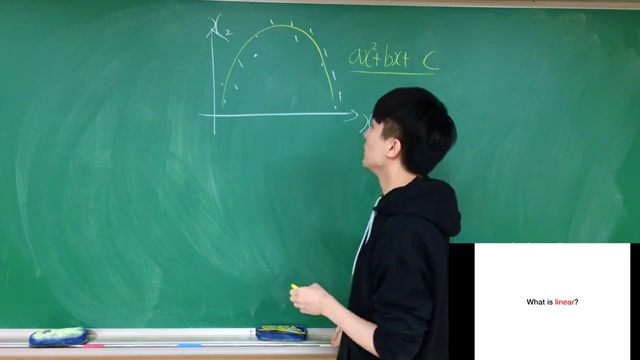 x₂
ax²+bx+ c
x
What is linear?